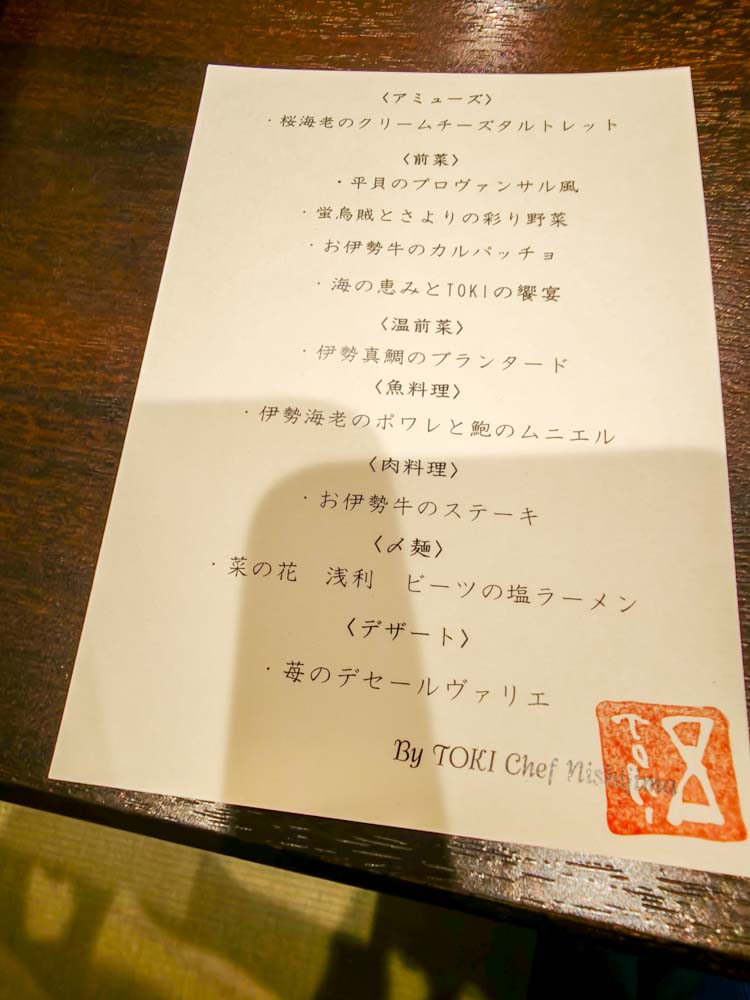 〈アミューズ〉
・桜海老のクリームチーズタルトレット
〈前菜〉
・平貝のプロヴァンサル風
・蛍烏賊とさよりの彩り野菜
・お伊勢牛のカルパッチョ
・海の恵みとTOKIの饗宴
〈温前菜〉
・伊勢真鯛のブランタード
〈魚料理〉
・伊勢海老のポワレと鮑のムニエル
〈肉料理〉
・お伊勢牛のステーキ
〈〆麺〉
・菜の花　浅利　ビーツの塩ラーメン
〈デザート〉
・苺のデセールヴァリエ
By TOKI Chef Nishijima
TOKI